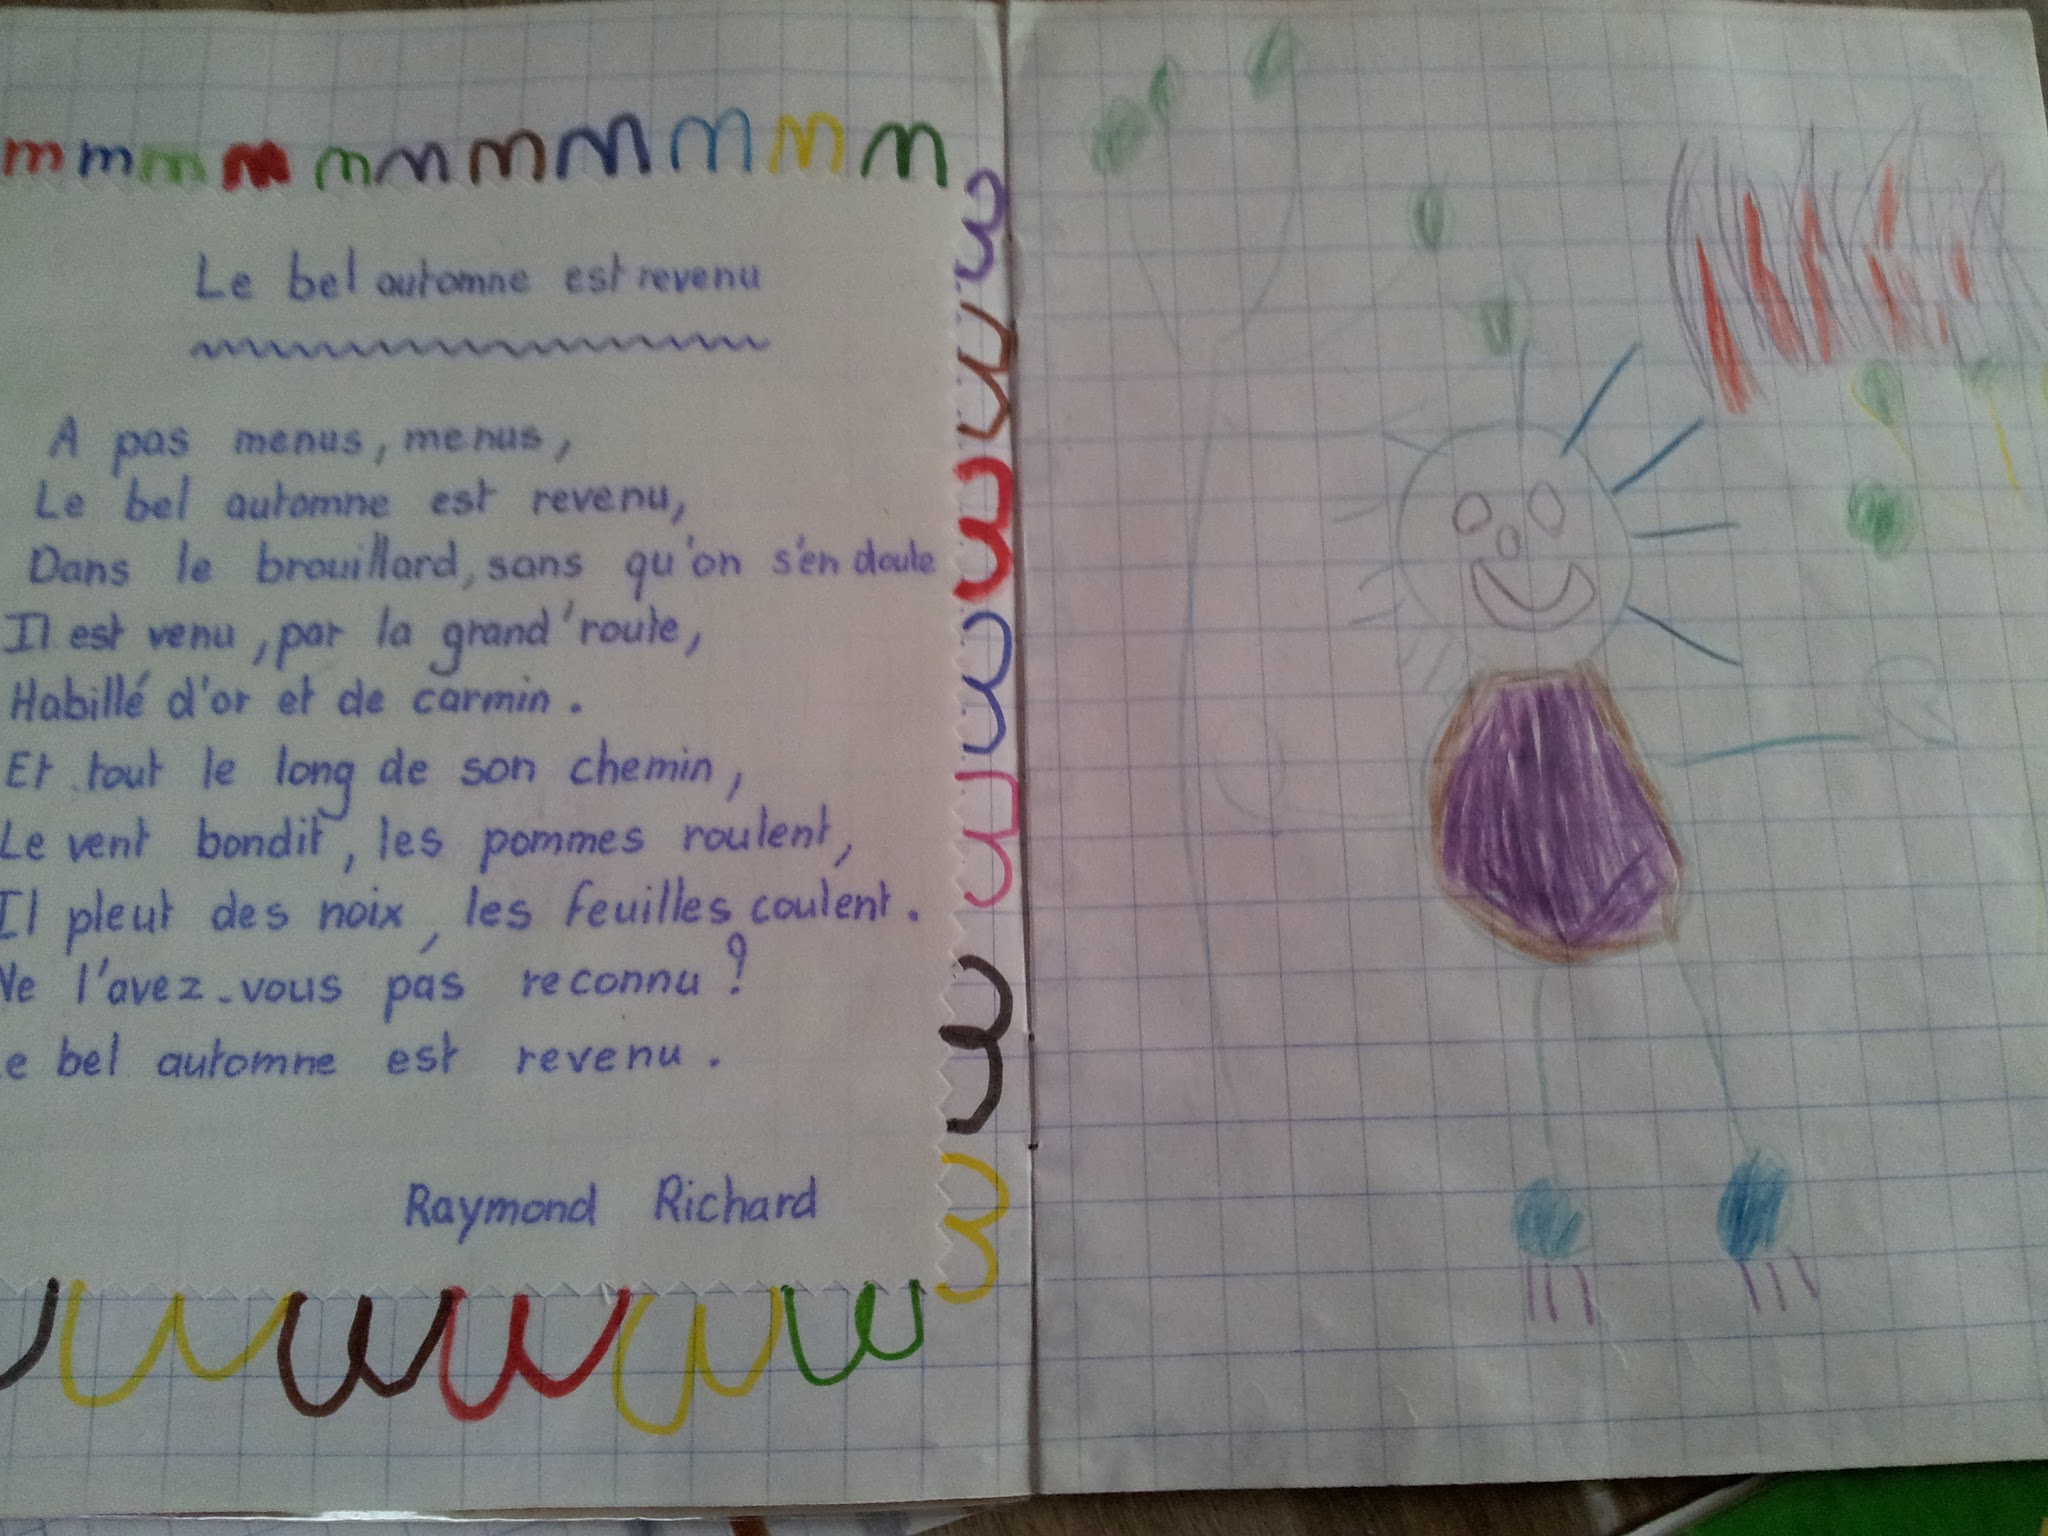 m m m m m m m m m m m
Le bel automne est revenu
A pas menus, menus,
Le bel automne est revenu,
Dans le brouillard, sans qu'on s'en doute
Il est venu, par la grand'route,
Habillé d'or et de carmin.
Et tout le long de son chemin,
Le vent bondit, les pommes roulent,
Il pleut des noix, les feuilles coulent.
Ne l'avez-vous pas reconnu?
Le bel automne est revenu.
Raymond Richard